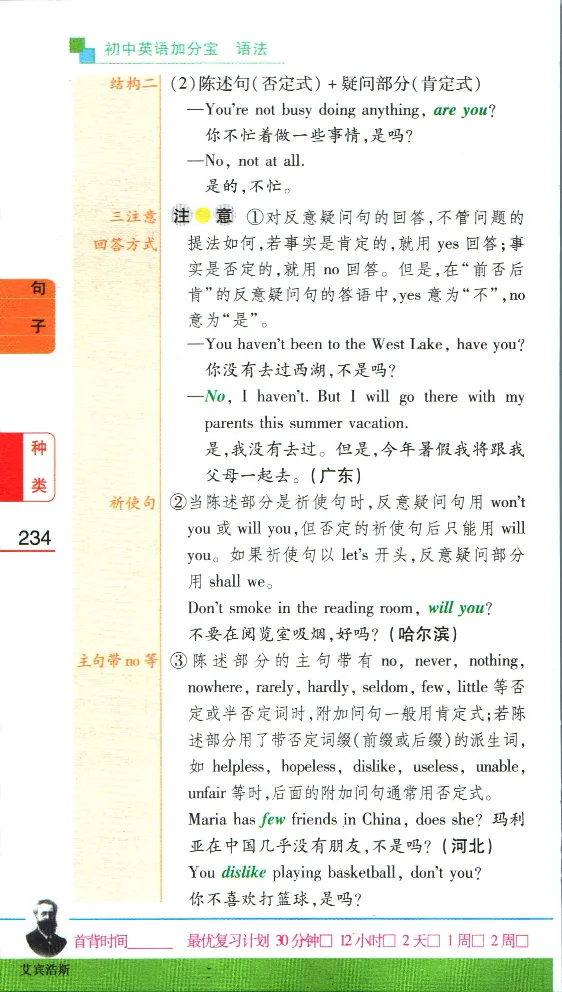 初中英语加分宝 语法
结构二 (2)陈述句(否定式)+疑问部分(肯定式)
—You're not busy doing anything, are you?
你不忙着做一些事情,是吗?
—No, not at all.
是的,不忙。
三注意 注意 ①对反意疑问句的回答,不管问题的
回答方式 提法如何,若事实是肯定的,就用 yes 回答;事
实是否定的,就用 no 回答。但是,在“前否后
肯”的反意疑问句的答语中,yes 意为“不”,no
意为“是”。
—You haven't been to the West Lake, have you?
你没有去过西湖,不是吗?
—No, I haven't. But I will go there with my
parents this summer vacation.
是,我没有去过。但是,今年暑假我将跟我
父母一起去。(广东)
祈使句 ②当陈述部分是祈使句时,反意疑问句用 won't
you 或 will you,但否定的祈使句后只能用 will
you。如果祈使句以 let's 开头,反意疑问部分
用 shall we。
Don't smoke in the reading room, will you?
不要在阅览室吸烟,好吗?(哈尔滨)
主句带 no 等 ③陈述部分的主句带有 no, never, nothing,
nowhere, rarely, hardly, seldom, few, little 等否
定或半否定词时,附加问句一般用肯定式;若陈
述部分用了带否定词缀(前缀或后缀)的派生词,
如 helpless, hopeless, dislike, useless, unable,
unfair 等时,后面的附加问句通常用否定式。
Maria has few friends in China, does she? 玛利
亚在中国几乎没有朋友,不是吗?(河北)
You dislike playing basketball, don't you?
你不喜欢打篮球,是吗?
句
子
种
类
234
首背时间______ 最优复习计划 30分钟□ 12小时□ 2天□ 1周□ 2周□
艾宾浩斯